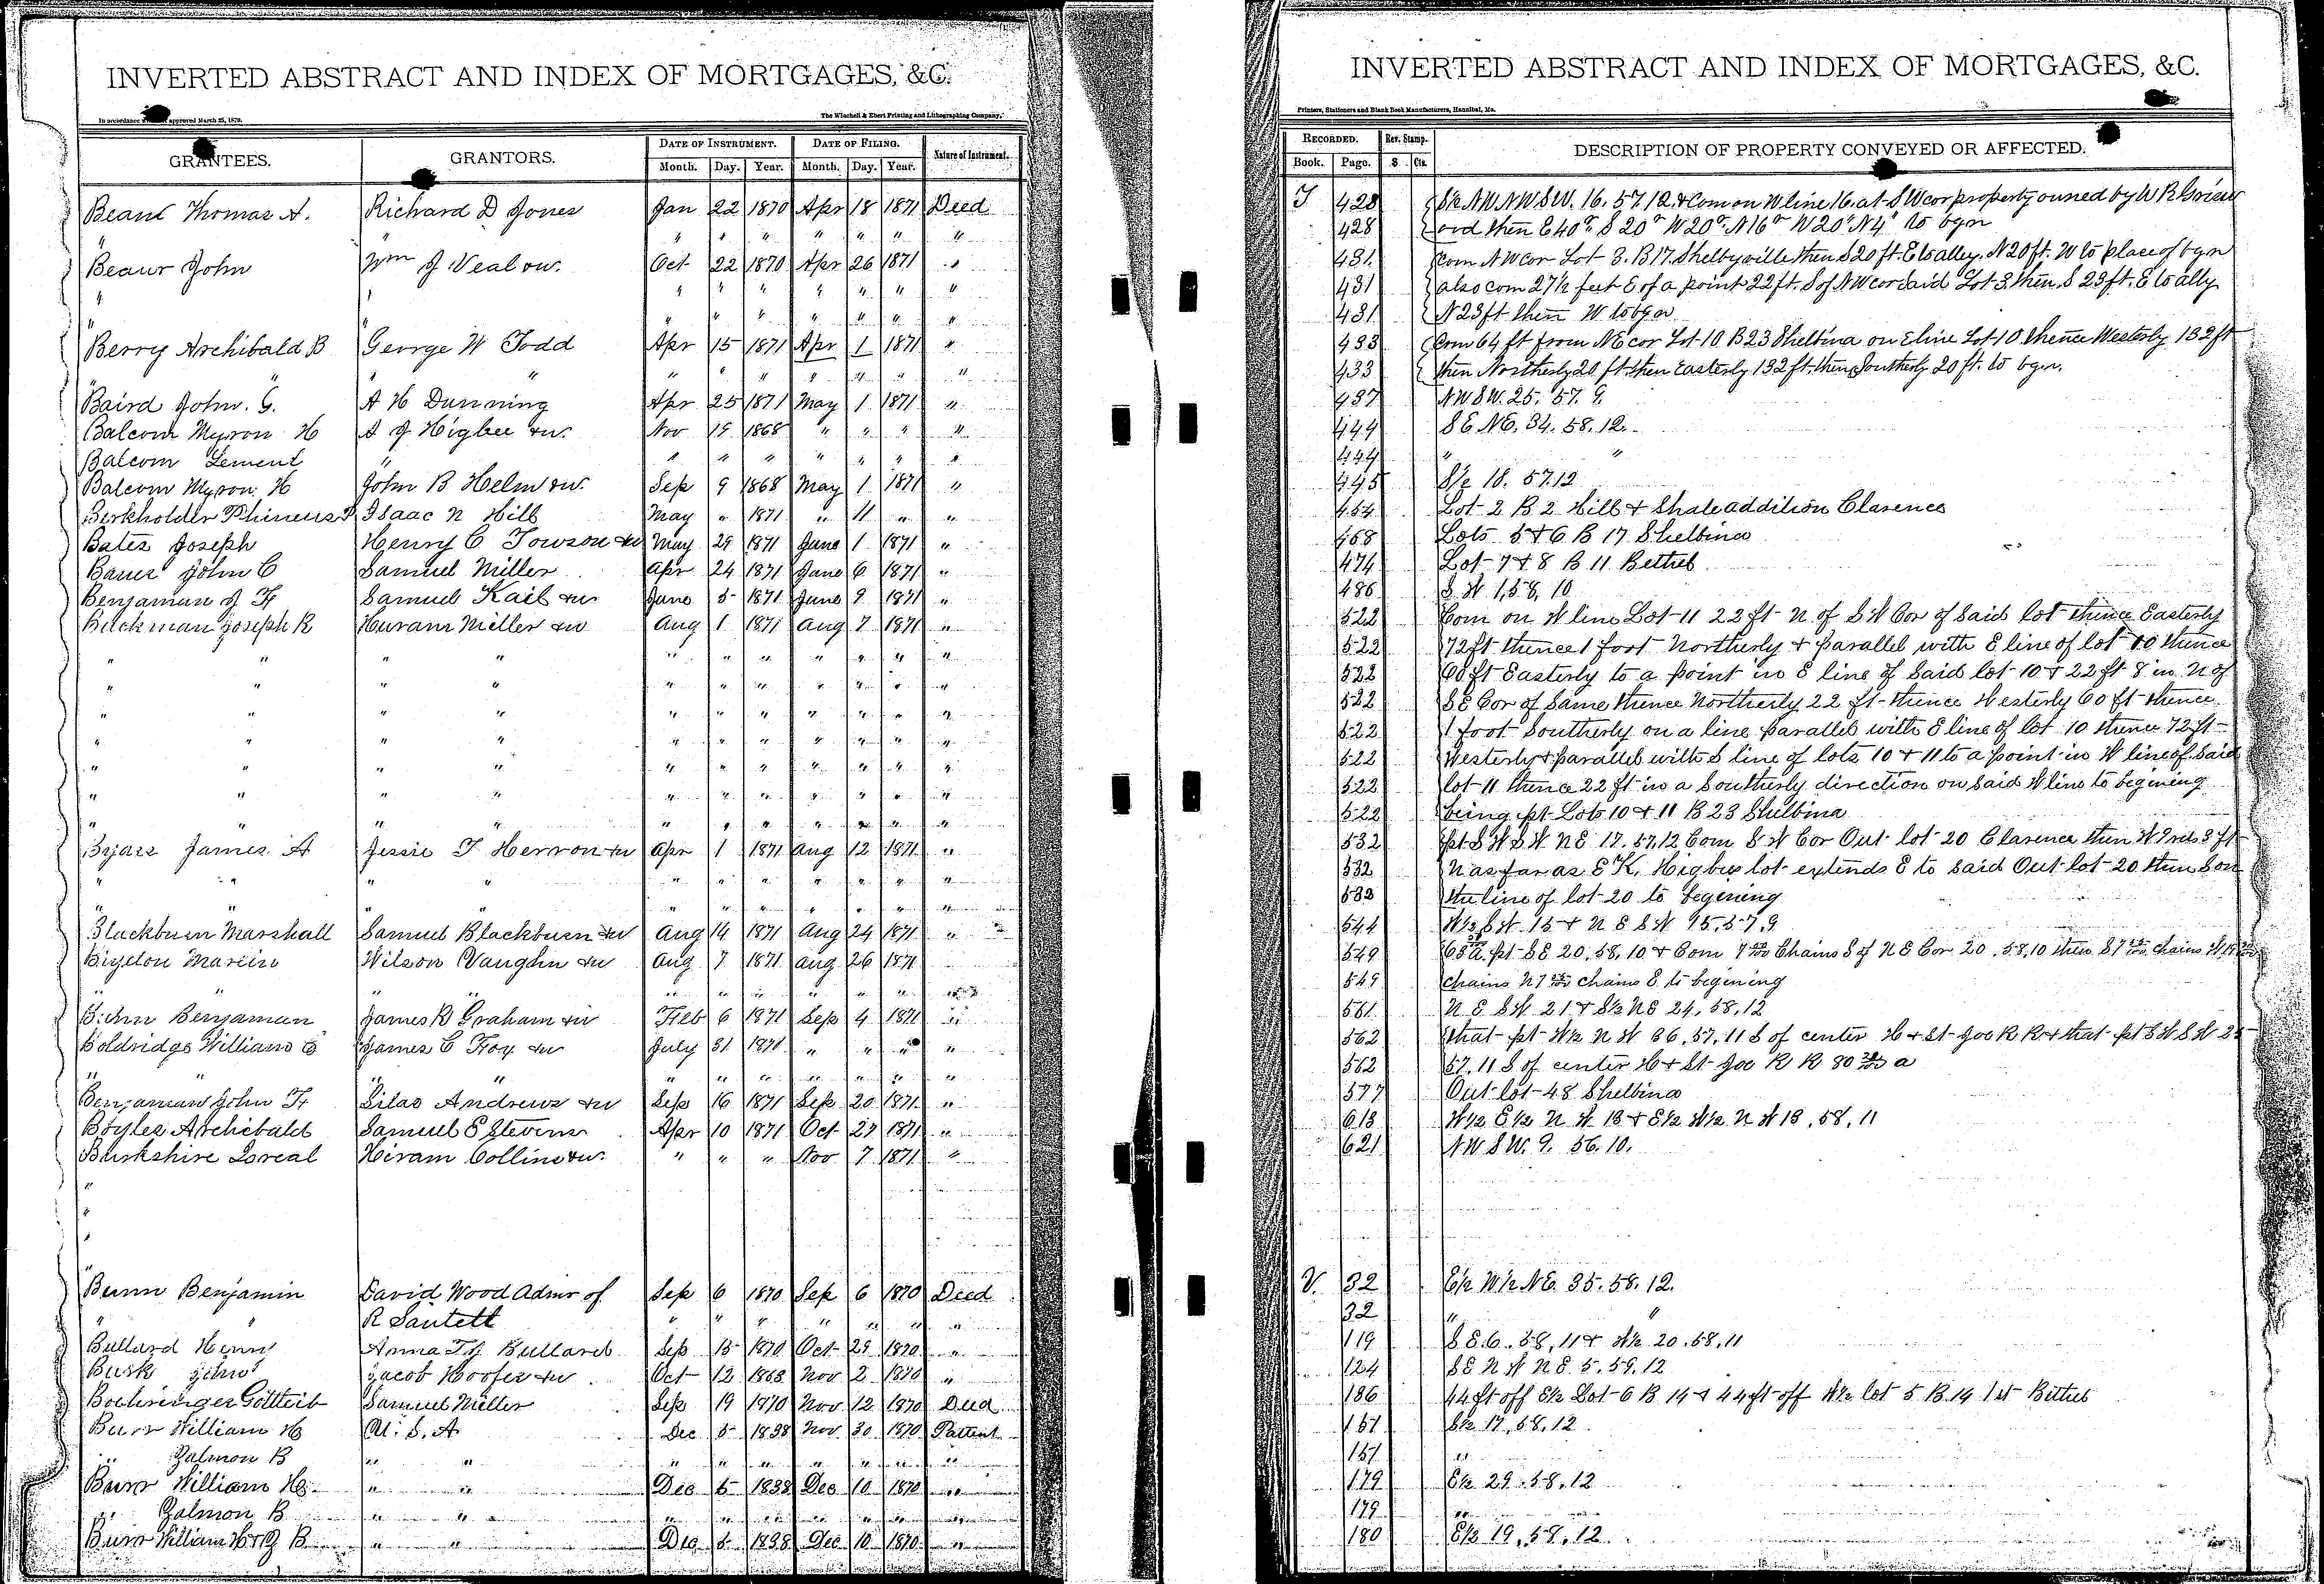 INVERTED ABSTRACT AND INDEX OF MORTGAGES, &C.
In accordance approved March 25, 1870.
The Winchell & Ebert Printing and Lithographing Company,
GRANTEES. GRANTORS. DATE OF INSTRUMENT. DATE OF FILING. Nature of Instrument.
Month. Day. Year. Month. Day. Year.
Thomas A. Richard D Jones Jan 22 1870 Apr 18 1871 Deed
" " " " " " " "
John Wm J Veal Oct 22 1870 Apr 26 1871 "
" " " " " " " "
" " " " " " "
Berry Archibald B George W Todd Apr 15 1871 Apr 1 1871 "
" " " " " " " " "
Baird John. G. A H Dunning Apr 25 1871 May 1 1871 "
Balcom Myron H A J Higbee &w. Nov 19 1868 " " " "
Balcom Lement " " " " " " " "
Balcom Myron. H John B Helm &w. Sep 9 1868 May 1 1871 "
Berkholder Isaac N Hill May " 1871 " 11 " "
Bates Joseph Henry C Towson &w May 29 1871 June 1 1871 "
Bauer John C Samuel Miller Apr 24 1871 June 6 1871 "
Benjaman J F Samuel Kail &w June 5 1871 June 9 1871 "
Joseph R Huram Miller &w Aug 1 1871 Aug 7 1871 "
" " " " " " " " " " "
" " " " " " " " " " "
" " " " " " " " " " "
" " " " " " " " " " "
" " " " " " " " " " "
" " " " " " " " " " "
" " " " " " " " " "
Byars James A Jessie T Herron &w Apr 1 1871 Aug 12 1871 "
" " " " " " " " " " "
" " " " " " " " " " "
Blackburn Marshall Samuel Blackburn &w Aug 14 1871 Aug 24 1871 "
Wilson Vaughn &w Aug 7 1871 Aug 26 1871
" " " " " " " " " "
Benjaman James R Graham &w Feb 6 1871 Sep 4 1871 "
Boldridge William James C Foy &w July 31 1871 " " " "
" " " " " " " " " "
Benjaman John F Silas Andrews &w Sep 16 1871 Sep 20 1871 "
Boyles Archibald Samuel E Stevens Apr 10 1871 Oct 27 1871 "
Burkshire Loreal Hiram Collins &w. " " " Nov 7 1871 "
Bunn Benjamin David Wood Admr of Sep 6 1870 Sep 6 1870 Deed
" R " " " " " " "
Bullard Henry Anna Bullard Sep 15 1870 Oct 29 1870 "
Busk John Jacob Hoofer &w Oct 12 1868 Nov 2 1870 "
Boehringer Gottleib Samuel Miller Sep 19 1870 Nov 12 1870 Deed
Burr William H U. S. A Dec 5 1838 Nov 30 1870 Pattent
" Zalmon B " " " " " " " " "
Burr William H. " " Dec 5 1838 Dec 10 1870 "
" Zalmon B " " " " " " " " "
Burr William H & Z B " " Dec 5 1838 Dec 10 1870 "
INVERTED ABSTRACT AND INDEX OF MORTGAGES, &C.
Printers, Stationers and Blank Book Manufacturers, Hannibal, Mo.
RECORDED. Rev. Stamp. DESCRIPTION OF PROPERTY CONVEYED OR AFFECTED.
Book. Page. $ Cts.
428 S½ NW NW SW. 16. 57. 12 & Com on W line 16. at SW cor property owned by W R
428 then E 40 S 20 W 20 N 16 W 20 N 4 to bgn
431 Com NW cor Lot 3. B 17. Shelbyville then S 20 ft. E to alley. N 20 ft. W to place of bgn
431 also com 27½ feet E of a point 22 ft. S of NW cor said Lot 3. then S 23 ft. E to ally
431 N 23 ft then W to bgn
433 Com 64 ft from NE cor Lot 10 B 23 Shelbina on E line Lot 10 thence Westerly 132 ft
433 then Northerly 20 ft. then Easterly 132 ft. then Southerly 20 ft. to bgn.
437 NW SW. 25. 57. 9.
444 SE NE. 34. 58. 12.
444 " "
445 S½ 18. 57.12
454 Lot 2 B 2 Hill & Shale addition Clarence
468 Lots 5 & 6 B 17 Shelbina
474 Lot 7 & 8 B 11 Bethel
486 S. W 1, 58, 10
522 Com on W line Lot 11 22 ft N of S W Cor of Said lot thence Easterly
522 72 ft thence 1 foot Northerly & parallel with E line of lot 10 thence
522 60 ft Easterly to a point in E line of Said lot 10 & 22 ft 8 in N of
522 S E Cor of Same thence Northerly 22 ft thence Westerly 60 ft thence
522 1 foot Southerly on a line parallel with E line of lot 10 thence 72 ft
522 Westerly & parallel with S line of lots 10 & 11 to a point in W line of Said
522 lot 11 thence 22 ft in a Southerly direction on Said W line to begining
522 being pt Lots 10 & 11 B 23 Shelbina
532 pt S W S W N E 17. 57, 12 Com S W Cor Out lot 20 Clarence then W 7 rds 8 ft
532 N as far as E K. Higbees lot extends E to Said Out lot 20 then S on
532 the line of lot 20 to begening
544 W½ S W 15 & N E S W 15. 57, 9
549 pt S E 20, 58, 10 & Com 7 Chains S of N E Cor 20, 58, 10 then S 7 chains W
549 chains N 7 chains E to begining
561 N E S W 21 & S½ N E 24, 58, 12
562 that pt W½ N W 36, 57, 11 S of center H & St Joe R R & that pt S W S W
562 57. 11 S of center H & St Joe R R 80 a
577 Out lot 48 Shelbina
618 W½ E½ N W 18 & E½ W½ N W 18, 58, 11
621 NW SW. 9. 56. 10.
V. 32 E½ W½ NE. 35. 58. 12.
32 " "
119 S E 6. 58, 11 & W½ 20. 58, 11
124 S E N W N E 5, 59, 12
136 44 ft off E½ Lot 6 B 14 & 44 ft off W½ lot 5 B 14 1st Bethel
151 S½ 17, 58, 12
151 "
179 E½ 29. 58. 12
179 "
180 E½ 19, 58, 12